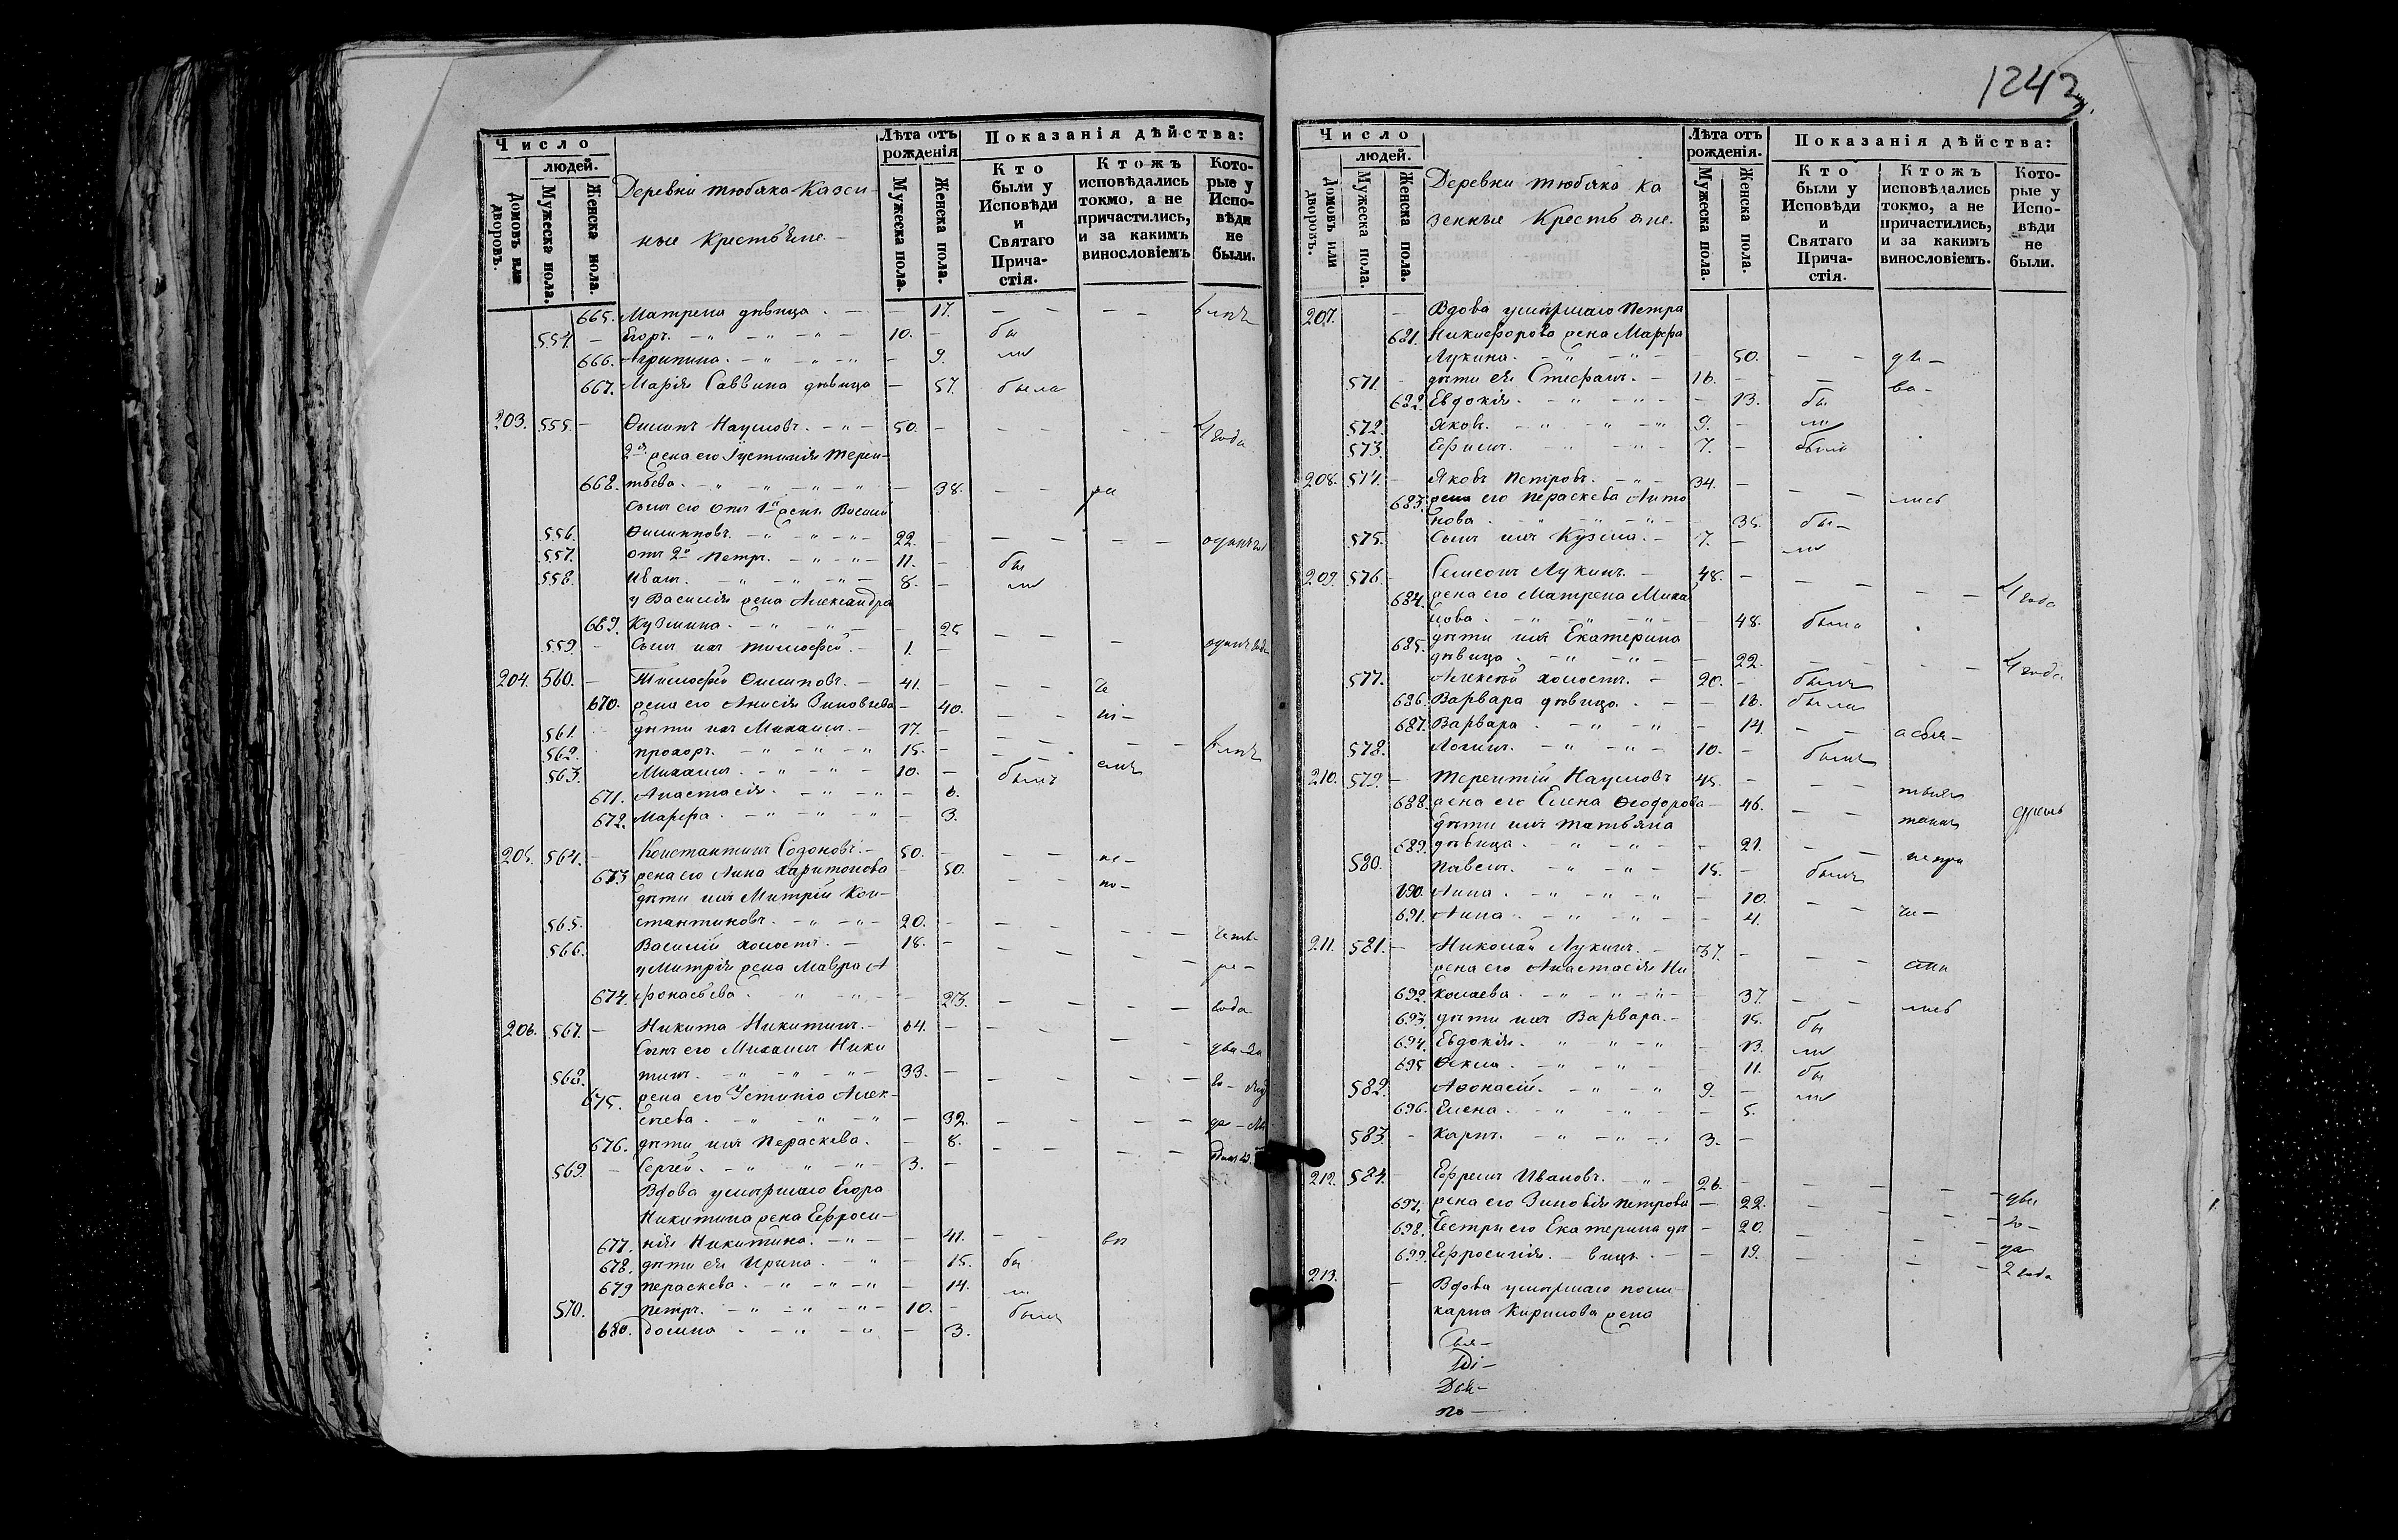 1242
Число
людей.
Домовъ или дворовъ.
Мужеска пола.
Женска пола.
Деревни Тюбяка Казен-
ные Крестьяне.
Лѣта отъ рожденія
Мужеска пола.
Женска пола.
Показанія дѣйства:
Кто были у Исповѣди и Святаго Прича-стія.
Ктожъ исповѣдались токмо, а не причастились, и за какимъ винословіемъ
Кото-рые у Испо-вѣди не были.
665. Матрена дѣвица 17.
554. Егоръ 10. бы
666. Агрипина 9. ли
667. Марія Саввина дѣвица 57. была
203. 555. Филипъ Наумовъ 50. 4 года
2я жена его Іустинія Терен-
668. тьева 38.
Сынъ его отъ 1й жены Василій
556. Филиповъ 22.
557. отъ 2й Петръ 11. бы
558. Иванъ 8. ли
у Василія жена Александра
669. Кузмина 25
559. Сынъ ихъ Тимофей 1. одинъ годъ
204. 560. Тимофей Филиповъ 41.
670. жена его Анисія Зиновьева 40.
561. дѣти ихъ Михаилъ 17.
562. Прохоръ 15.
563. Михаилъ 10. былъ
671. Анастасія 6.
672. Марфа 3.
205. 564. Константинъ Созоновъ 50.
673 жена его Анна Харитонова 50.
дѣти ихъ Митрій Кон-
565. стантиновъ 20.
566. Василій холостъ 18.
у Митрія жена Мавра А
674. фонасьева 23. года
206. 567. Никита Никитинъ 64.
Сынъ его Михаилъ Ники
568. тинъ 33.
675. жена его Устинія Алек-
сѣева 32.
676. дѣти ихъ Пераскева 8.
569. Сергей 3.
Вдова умершаго Егора
Никитина жена Ефроси-
677. нія Никитина 41.
678. дѣти ея Ирина 15. бы
679 Пераскева 14. ли
570. Петръ 10. былъ
680. Домна 3.
Число
людей.
Домовъ или дворовъ.
Мужеска пола.
Женска пола.
Деревни Тюбяко Ка
зенные Крестьяне.
Лѣта отъ рожденія.
Мужеска пола.
Женска пола.
Показанія дѣйства:
Кто были у Исповѣди и Святаго Прича-стія.
Ктожъ исповѣдались токмо, а не причастились, и за какимъ винословіемъ.
Кото-рые у Испо-вѣди не были.
207. Вдова умершаго Петра
681. Никифорова жена Марфа
Лукина 50.
571. дѣти ея Стефанъ 16.
682. Евдокія 13. бы
572. Яковъ 9. ли
573. Ефимъ 7. былъ
208. 574. Яковъ Петровъ 34.
683. жена его Пераскева Анто
нова 35. бы
575. Сынъ ихъ Кузма 7. ли
209. 576. Симеонъ Лукинъ 48. 4 года
684. жена его Матрена Миха
лова 48. была
685. дѣти ихъ Екатерина
дѣвица 22. 4 года
577. Алексѣй холостъ 20. былъ
686. Варвара дѣвица 16. была
687. Варвара 14.
578. Логинъ 10. былъ
210. 579. Терентій Наумовъ 45.
688. жена его Елена Феодорова 46.
дѣти ихъ Татьяна
689. дѣвица 21.
580. Павелъ 15. былъ
690. Анна 10.
691. Анна 4.
211. 581. Николай Лукинъ 37.
жена его Анастасія Ни
692. колаева 37.
693. дѣти ихъ Варвара 15. бы
694. Евдокія 13. ли
695 Фекла 11. бы
582. Афонасій 9. ли
696. Елена 5.
583. Карпъ 3.
212. 584. Ефремъ Ивановъ 26.
697. жена его Зиновія Петрова 22.
698. Сестры его Екатерина дѣ 20.
699. Ефросинія вицы 19. 2 года
213. Вдова умершаго Поли-
карпа Кирилова жена